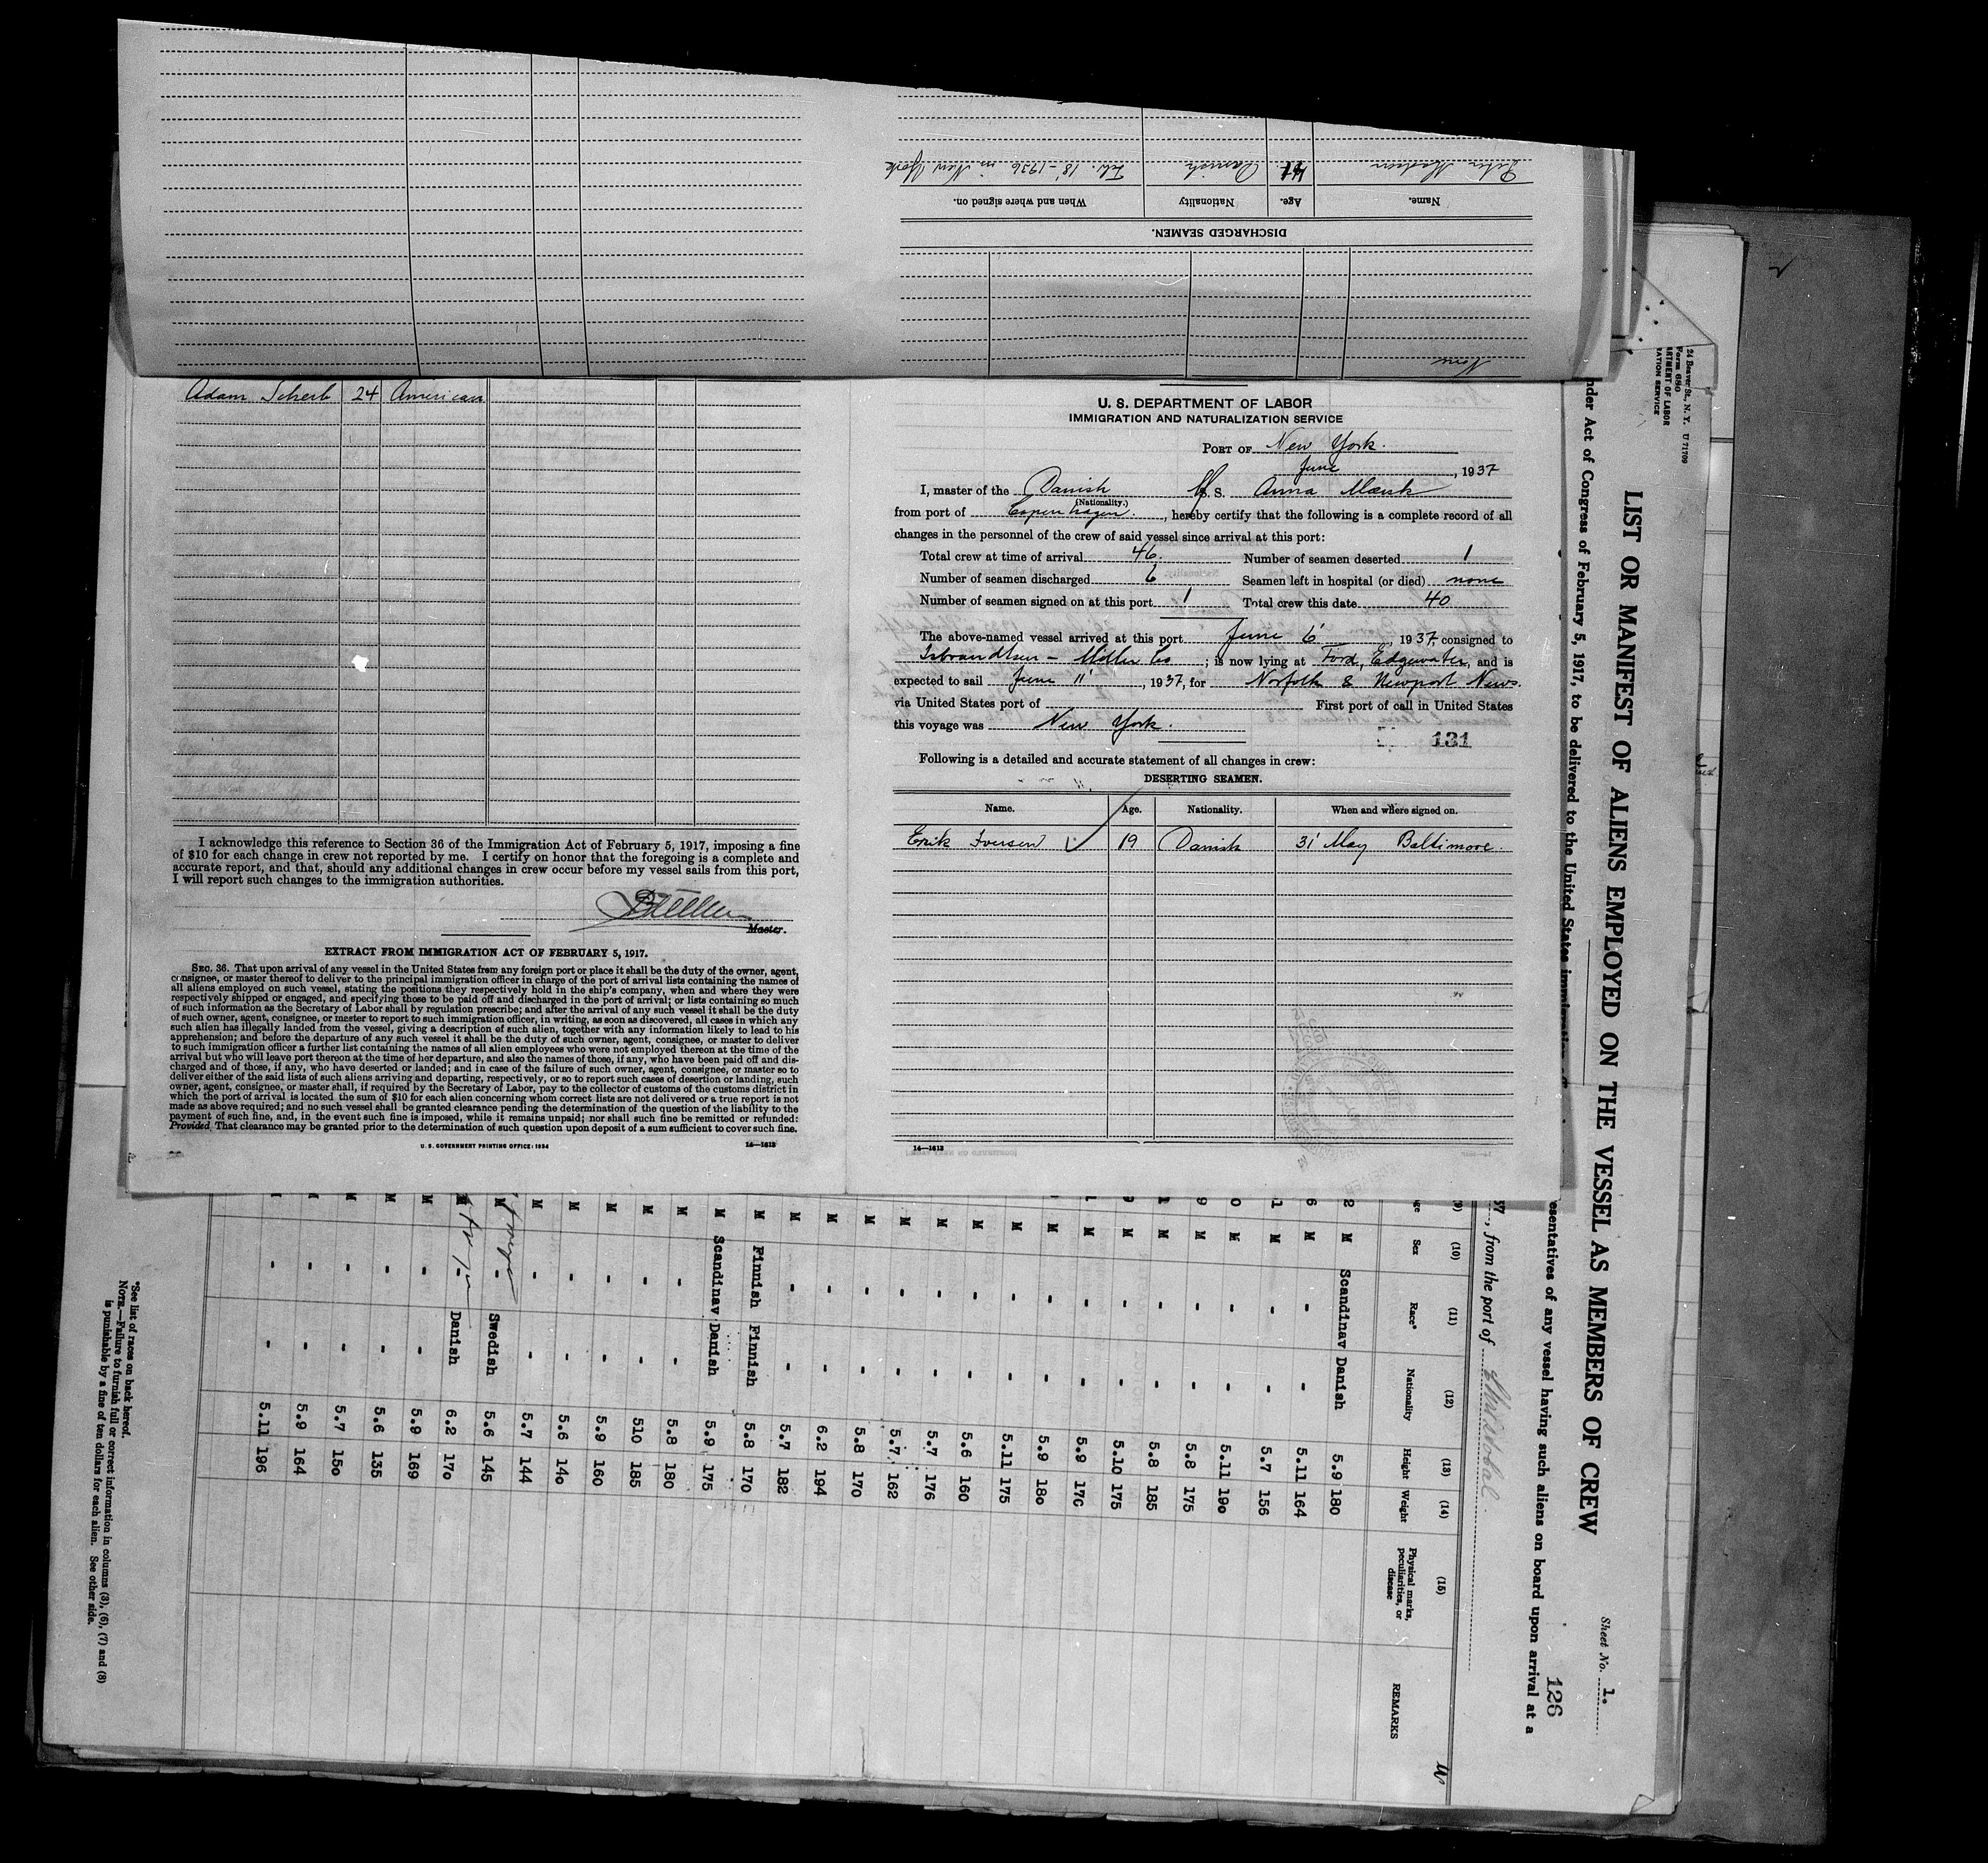 Peter Madsen 41 Danish Feb. 18'-1936 in New York
Name. Age. Nationality When and where signed on.
DISCHARGED SEAMEN.
None
Adam Scherb 24 American
I acknowledge this reference to Section 36 of the Immigration Act of February 5, 1917, imposing a fine
of $10 for each change in crew not reported by me. I certify on honor that the foregoing is a complete and
accurate report, and that, should any additional changes in crew occur before my vessel sails from this port,
I will report such changes to the immigration authorities.
Master.
EXTRACT FROM IMMIGRATION ACT OF FEBRUARY 5, 1917.
SEC. 36. That upon arrival of any vessel in the United States from any foreign port or place it shall be the duty of the owner, agent,
consignee, or master thereof to deliver to the principal immigration officer in charge of the port of arrival lists containing the names of
all aliens employed on such vessel, stating the positions they respectively hold in the ship's company, when and where they were
respectively shipped or engaged, and specifying those to be paid off and discharged in the port of arrival; or lists containing so much
of such information as the Secretary of Labor shall by regulation prescribe; and after the arrival of any such vessel it shall be the duty
of such owner, agent, consignee, or master to report to such immigration officer, in writing, as soon as discovered, all cases in which any
such alien has illegally landed from the vessel, giving a description of such alien, together with any information likely to lead to his
apprehension; and before the departure of any such vessel it shall be the duty of such owner, agent, consignee, or master to deliver
to such immigration officer a further list containing the names of all alien employees who were not employed thereon at the time of the
arrival but who will leave port thereon at the time of her departure, and also the names of those, if any, who have been paid off and dis-
charged and of those, if any, who have deserted or landed; and in case of the failure of such owner, agent, consignee, or master so to
deliver either of the said lists of such aliens arriving and departing, respectively, or so to report such cases of desertion or landing, such
owner, agent, consignee, or master shall, if required by the Secretary of Labor, pay to the collector of customs of the customs district in
which the port of arrival is located the sum of $10 for each alien concerning whom correct lists are not delivered or a true report is not
made as above required; and no such vessel shall be granted clearance pending the determination of the question of the liability to the
payment of such fine, and, in the event such fine is imposed, while it remains unpaid; nor shall such fine be remitted or refunded:
Provided, That clearance may be granted prior to the determination of such question upon deposit of a sum sufficient to cover such fine.
U. S. GOVERNMENT PRINTING OFFICE: 1934 14—1613
U. S. DEPARTMENT OF LABOR
IMMIGRATION AND NATURALIZATION SERVICE
PORT OF New York.
June, 1937
I, master of the Danish S. Anna Mærsk
(Nationality.)
from port of Copenhagen., hereby certify that the following is a complete record of all
changes in the personnel of the crew of said vessel since arrival at this port:
Total crew at time of arrival 46. Number of seamen deserted 1
Number of seamen discharged 6 Seamen left in hospital (or died) none
Number of seamen signed on at this port 1 Total crew this date 40
The above-named vessel arrived at this port June 6', 1937, consigned to
Isbrandtsen - Moller Co; is now lying at Ford, Edgewater, and is
expected to sail June 11', 1937, for Norfolk & Newport News.
via United States port of First port of call in United States
this voyage was New York.
131
Following is a detailed and accurate statement of all changes in crew:
DESERTING SEAMEN.
Name. Age. Nationality. When and where signed on.
Erik Iversen 19 Danish 31' May Baltimore.
14—1613
24 Beaver St., N. Y. U 71709
Form 680
LIST OR MANIFEST OF ALIENS EMPLOYED ON THE VESSEL AS MEMBERS OF CREW
Sheet No. 1.
126
nder Act of Congress of February 5, 1917, to be delivered to the United States immigration
esentatives of any vessel having such aliens on board upon arrival at a
37, from the port of Christobal.
(10) (11) (12) (13) (14) (15)
Sex Race* Nationality Height Weight Physical marks, peculiarities, or disease REMARKS
2 M Scandinav Danish 5.9 180
6 M - - 5.11 164
1 M - - 5.7 156
0 M - - 5.11 190
9 M - - 5.8 175
1 M - - 5.8 185
9 M - - 5.10 175
1 M - - 5.9 170
M - - 5.9 180
M - - 5.11 175
M - - 5.6 160
M - - 5.7 176
M - - 5.7 162
M - - 5.8 170
M - - 6.2 194
M - - 5.7 182
M Finnish Finnish 5.8 170
M Scandinav Danish 5.9 175
M - - 5.8 180
M - - 510 185
M - - 5.9 160
M - - 5.6 140
M - - 5.7 144
M - Swedish 5.6 145
M - Danish 6.2 170
M - - 5.9 169
M - - 5.6 135
M - - 5.7 150
M - - 5.9 164
- - 5.11 196
*See list of races on back hereof.
NOTE.—Failure to furnish full or correct information in columns (3), (6), (7) and (8)
is punishable by a fine of ten dollars for each alien. See other side.